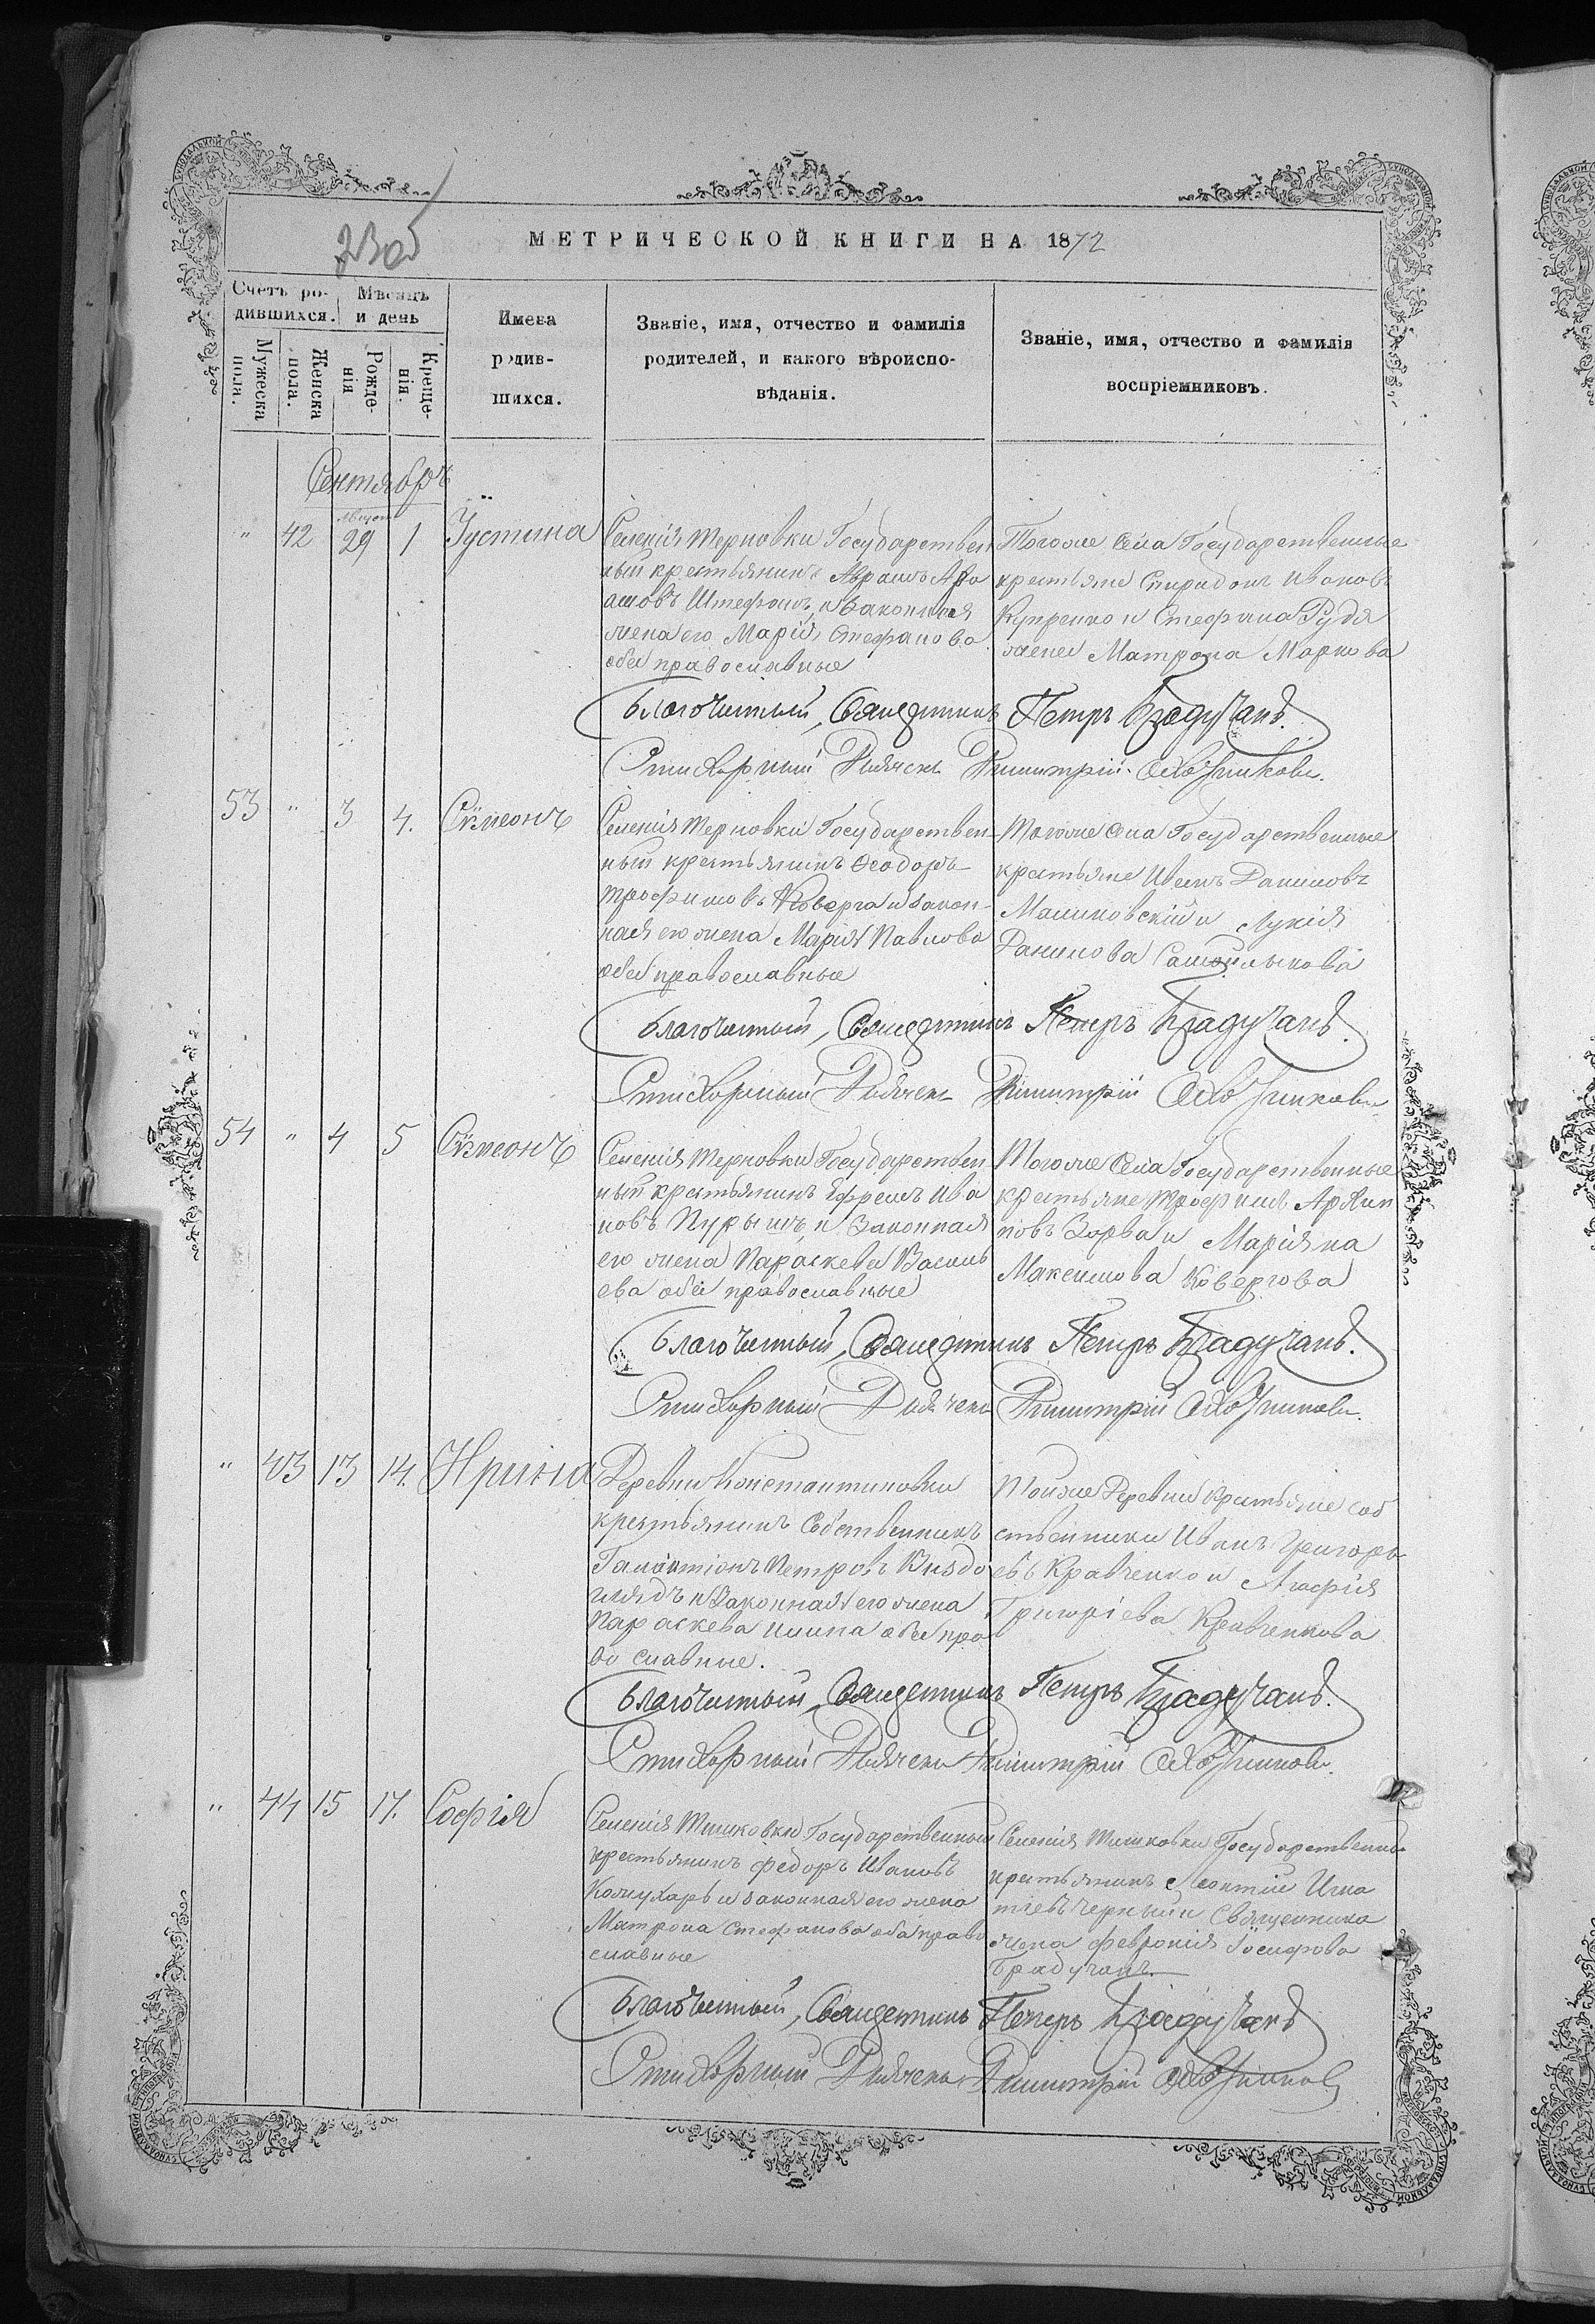 МЕТРИЧЕСКОЙ КНИГИ НА 1872
Счетъ ро-
дившихся.
Мѣсяцъ
и день
Мужеска
пола.
Женска
пола.
Рожде-
нія
Креще-
нія.
Имена
родив-
шихся.
Званіе, имя, отчество и фамилія
родителей, и какого вѣроиспо-
вѣданія.
Званіе, имя, отчество и фамилія
воспріемниковъ.
Сентябрь
" 42 августа 29 1 Іустина
Селенія Терновки Государствен
ный крестьянинъ Авраамъ Авра
амовъ Штефанъ и законная
жена его Марія Стефанова
обеи православные
Тогоже села Государственные
крестьяне Спиридонъ Ивановъ
Купренко и Стефана Рудя
жена Матрона Маркова
Благочинный, Священникъ Петръ Брадучанъ.
Стихарный Дьячекъ Димитрій
53 " 3 4. Сѵмеонъ
Селенія Терновки Государствен-
ный крестьянинъ Ѳеодоръ
Трофимовъ Коверга и закон-
ная его жена Марія Павлова
обеи православные
Тогоже села Государственные
крестьяне Иванъ Даниловъ
Малиновскій и Лукія
Данилова Самойлыкова
Благочинный, Священникъ Петръ Брадучанъ.
Стихарный Дьячекъ Димитрій
54 " 4 5 Сѵмеонъ
Селенія Терновки Государствен
ный крестьянинъ Ефремъ Ива
новъ Пурышъ и Законная
его жена Параскева Василь
ева обеи православные
Тогоже села Государственные
крестьяне Трофимъ Архип
повъ Зорва и Маріяна
Максимова Ковергова
Благочинный, Священникъ Петръ Брадучанъ.
Стихарный Дьячекъ Димитрій
" 43 13 14. Ирина
Деревни Константиновки
крестьянинъ Собственникъ
Галактіонъ Петровъ
и законная его жена
Параскева Ильина обеи пра
во славные.
Тойже Деревни крестьяне соб
ственники Иванъ Григорь
евъ Кравченко и Агафія
Григоріева Кравченкова
Благочинный, Священникъ Петръ Брадучанъ.
Стихарный Дьячекъ Димитрій
" 44 15 17. Софія
Селенія Тишковки Государственный
крестьянинъ Федоръ Ивановъ
Кожухарь и законная его жена
Матрона Стефанова оба право
славные
Селенія Тишковки Государственный
крестьянинъ Леонтій Игна
тіевъ Черный и Священника
жена Февронія Іосифова
Брадучанъ.
Благочинный, Священникъ Петръ Брадучанъ
Стихарный Дьячекъ Димитрій